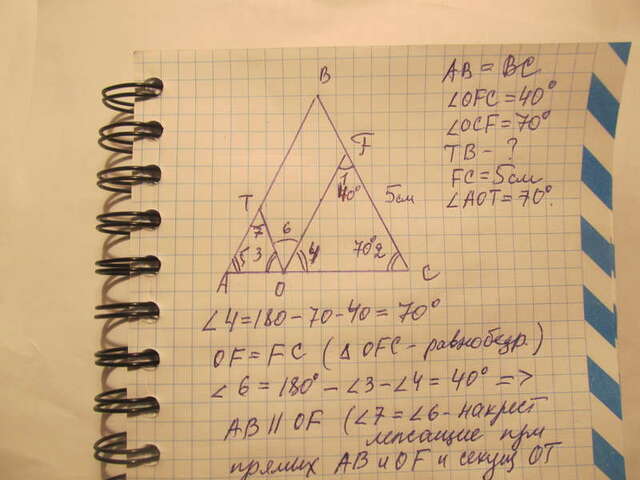 B
AB = BC
∠OFC = 40°
∠OCF = 70°
TB - ?
FC = 5см
∠AOT = 70°.
F
1
40°
5см
T
7
6
5
3
4
70°
2
A
O
C
∠4 = 180 - 70 - 40 = 70°
OF = FC (△ OFC - равнобедр.)
∠6 = 180° - ∠3 - ∠4 = 40° =>
AB || OF (∠7 = ∠6 - накрест
лежащие при
прямых AB и OF и секущ OT